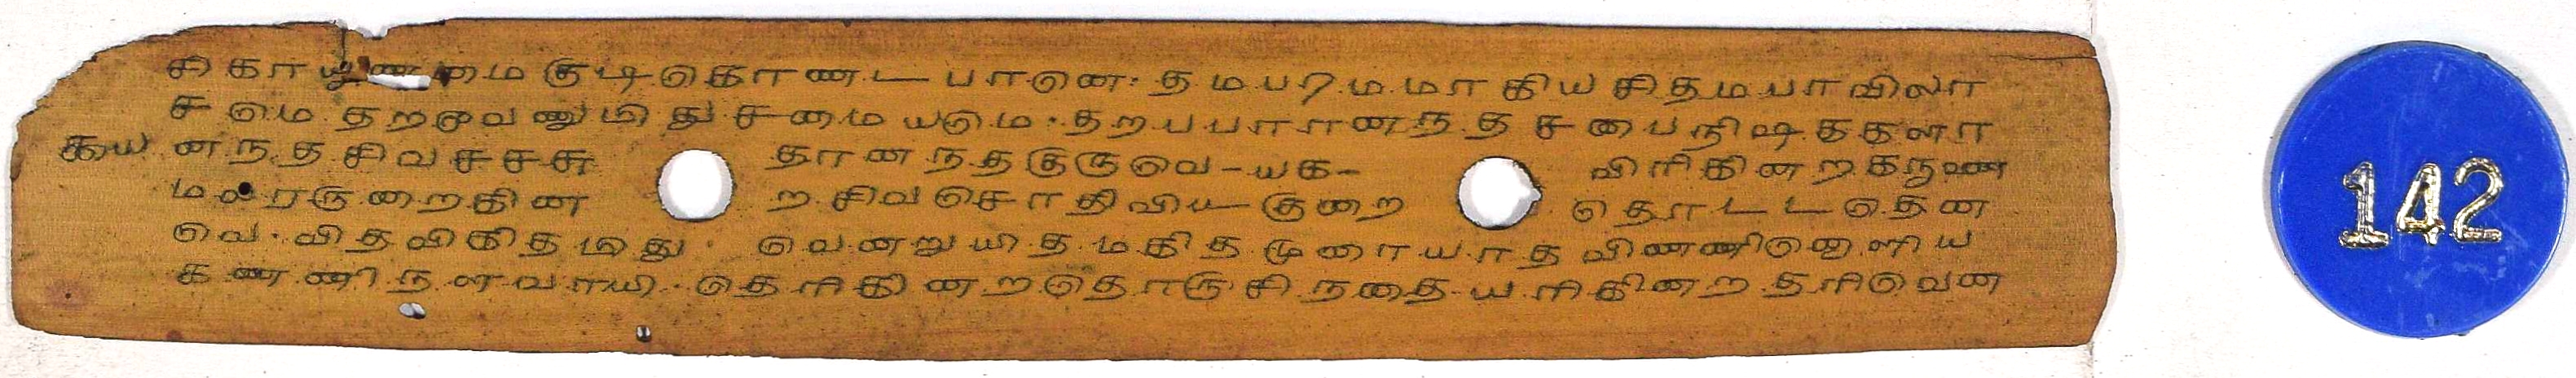 சிகாய ணமைகுடிகொணடபானெ. தமபரமமாகியசிதமபாவிலா
சமெதறகுவணுமிதுசமையமெ. தறபபாரானநதசபைநிஷககளா
கூய னநதசிவசசசு தானநதகுருவெ-யக- விரிகினறகநூண
மலரகுறைகின றசிவசொதிவியகுறை தொடடதென
வெ. விதவிகிதமிது வெனறுயிதமகிதமுரையாதவிணணினெளிய
கணணிநளவாயி. தெரிகினறதொருசிநதை யரிகினறதரிவென
142